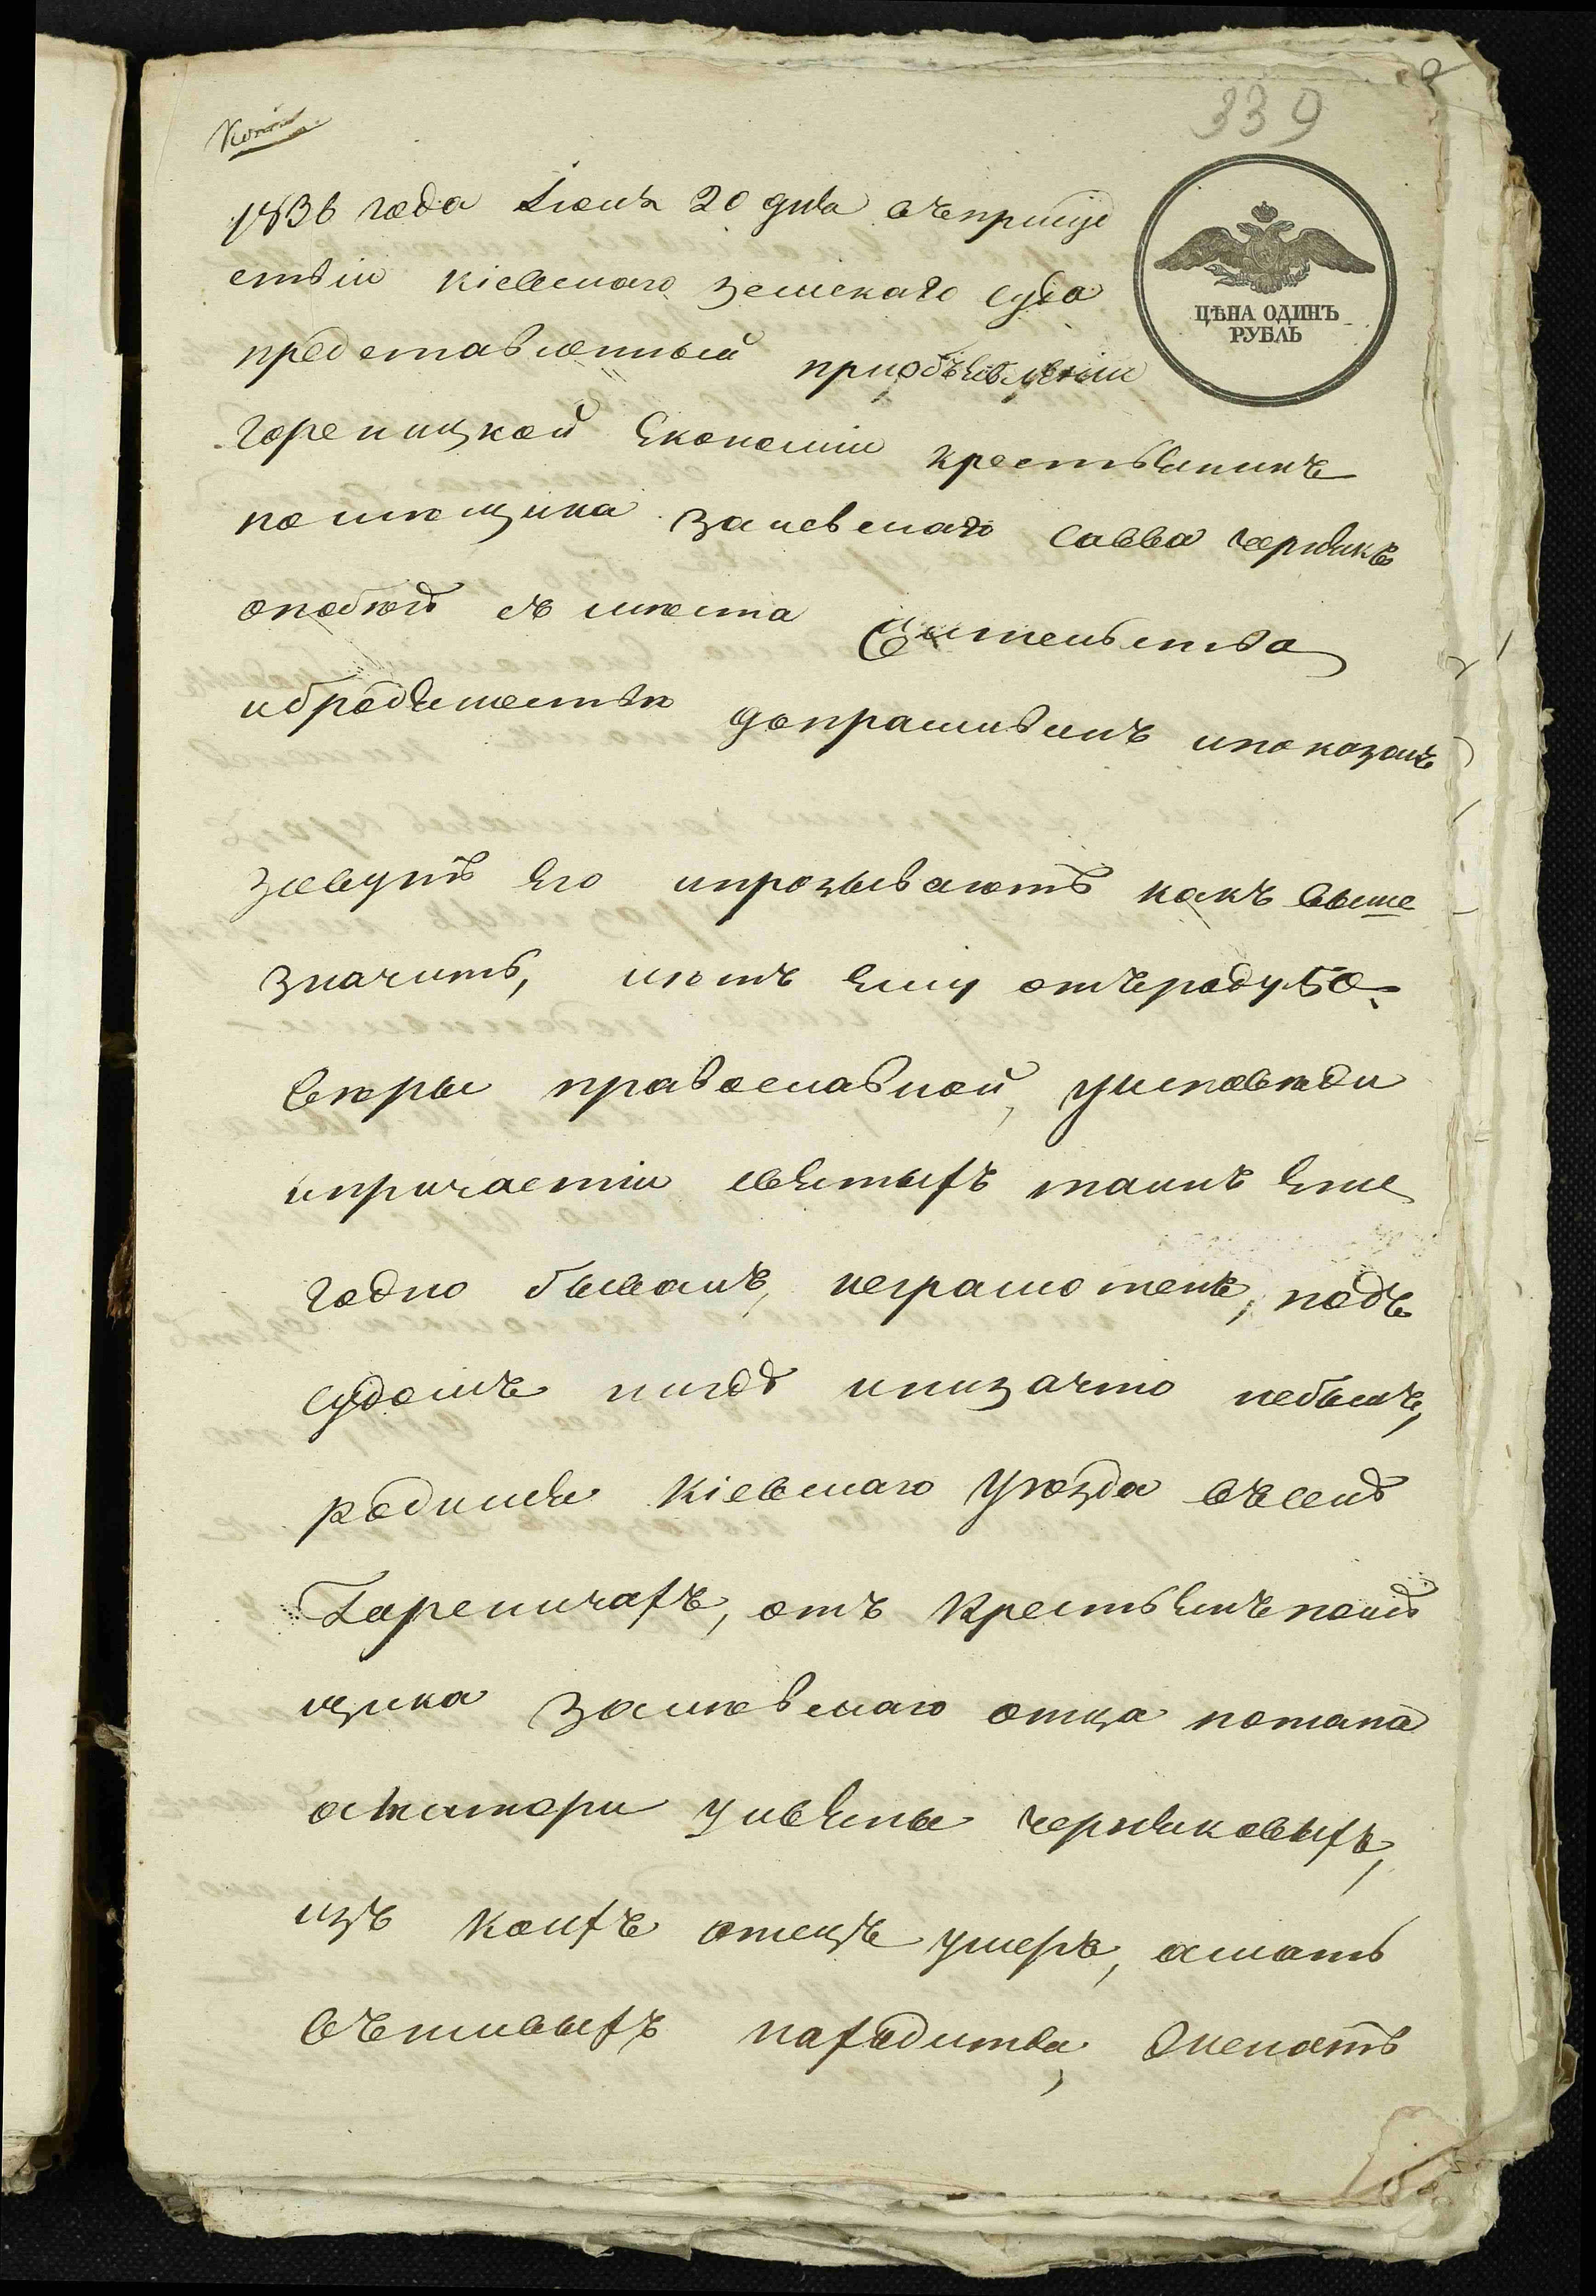 Копія
339
1836 года Іюня 20 дня въ присуд
ствіи Кіевскаго земскаго суда
ЦѢНА ОДИНЪ
РУБЛЬ
представленный приобъявленіи
Гореницкой Економіи крестьянинъ
помѣщика Залевскаго Савва Чернякъ
опобѣгѣ съ мѣста жительства
ибродяжествѣ допрашиванъ ипоказалъ
зовутъ его ипрозываютъ какъ выше
значитъ, лѣтъ ему отъроду 50
вѣры православной, уисповѣди
ипричастіи святыхъ таинъ еже
годно бывалъ, неграмотенъ, подъ
судомъ нигдѣ инизачто небылъ,
родился Кіевскаго Уѣзда въселѣ
Гареничахъ, отъ Крестьянъ помѣ
щика Залѣвскаго отца потапа
аматери Ульяны Черняковыхъ,
изъ коихъ отецъ умеръ, амать
въживыхъ находится, Оженатъ